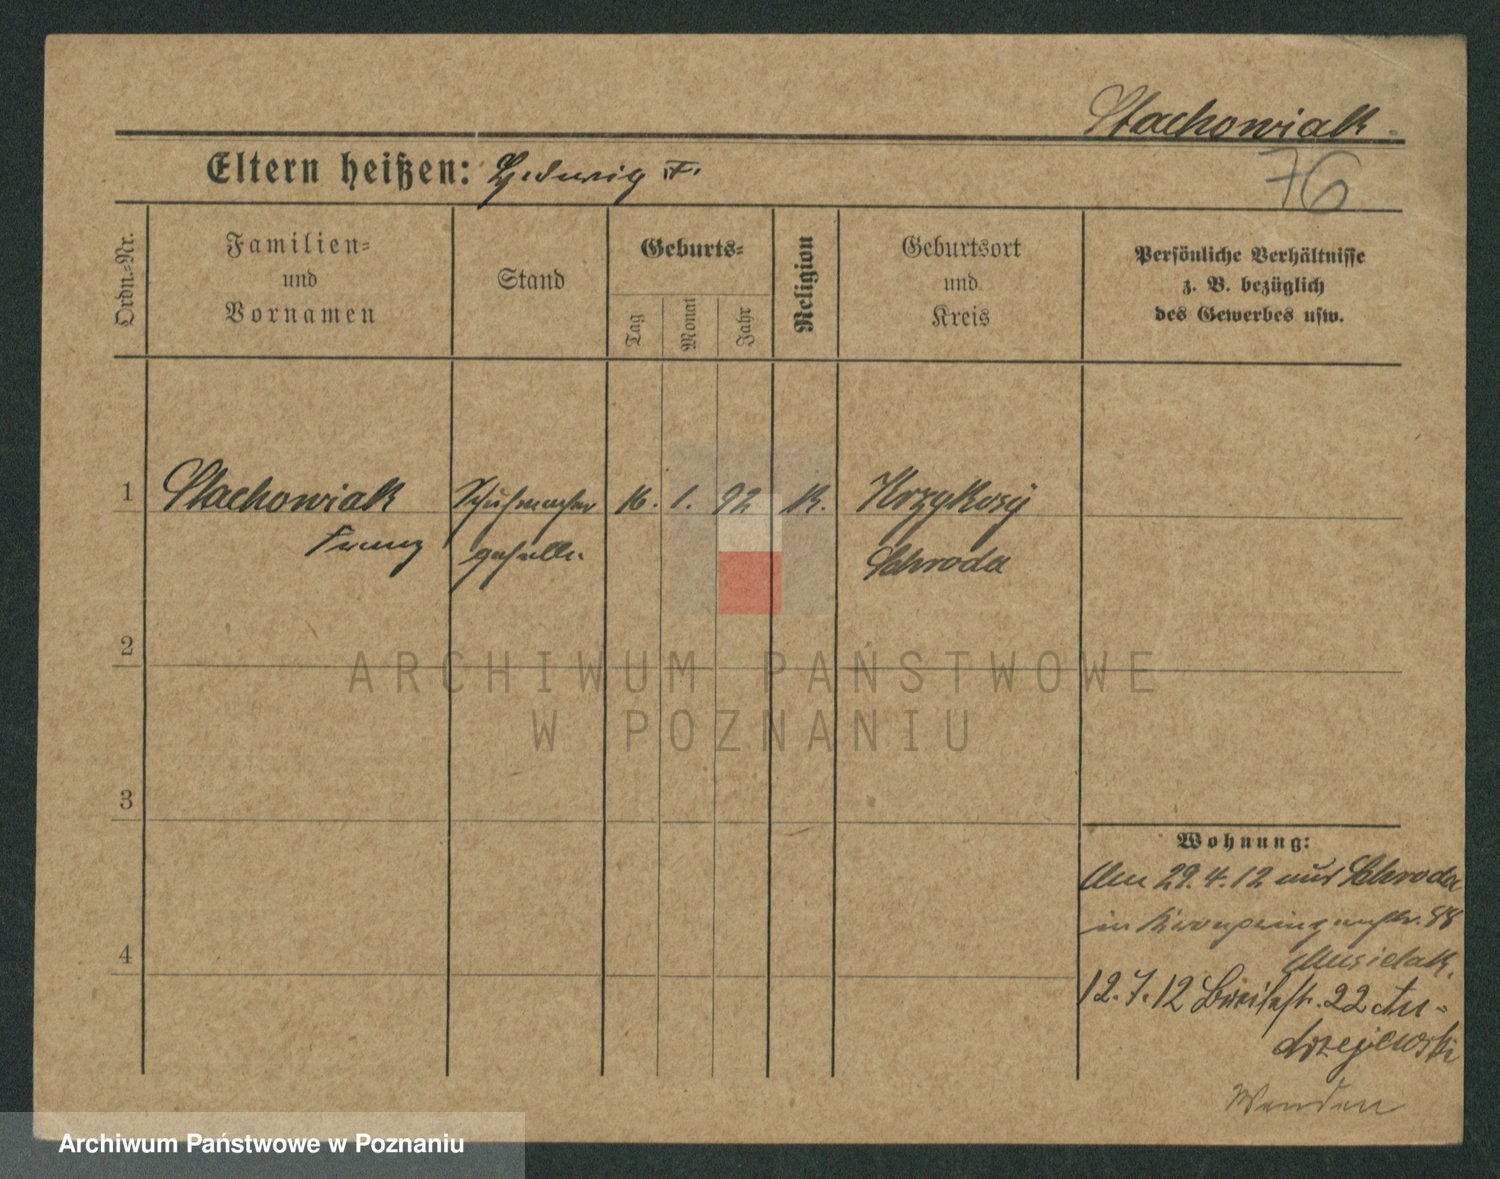 Stachowiak
76
Eltern heißen: Hedwig F.
Ordn.-Nr.
Familien-
und
Vornamen
Stand
Geburts-
Tag
Monat
Jahr
Religion
Geburtsort
und
Kreis
Persönliche Verhältnisse
z. B. bezüglich
des Gewerbes usw.
1 Stachowiak Schuhmacher 16. 1. 92 K. Krzykosy
Franz geselle Schroda
2
3
4
Wohnung:
Am 29.4.12 aus Schroda
in Kronprinzenstr. 88
Musielak.
12.7.12 Breitestr. 22 An-
drzejewski
Wenden
ARCHIWUM PAŃSTWOWE
W POZNANIU
Archiwum Państwowe w Poznaniu